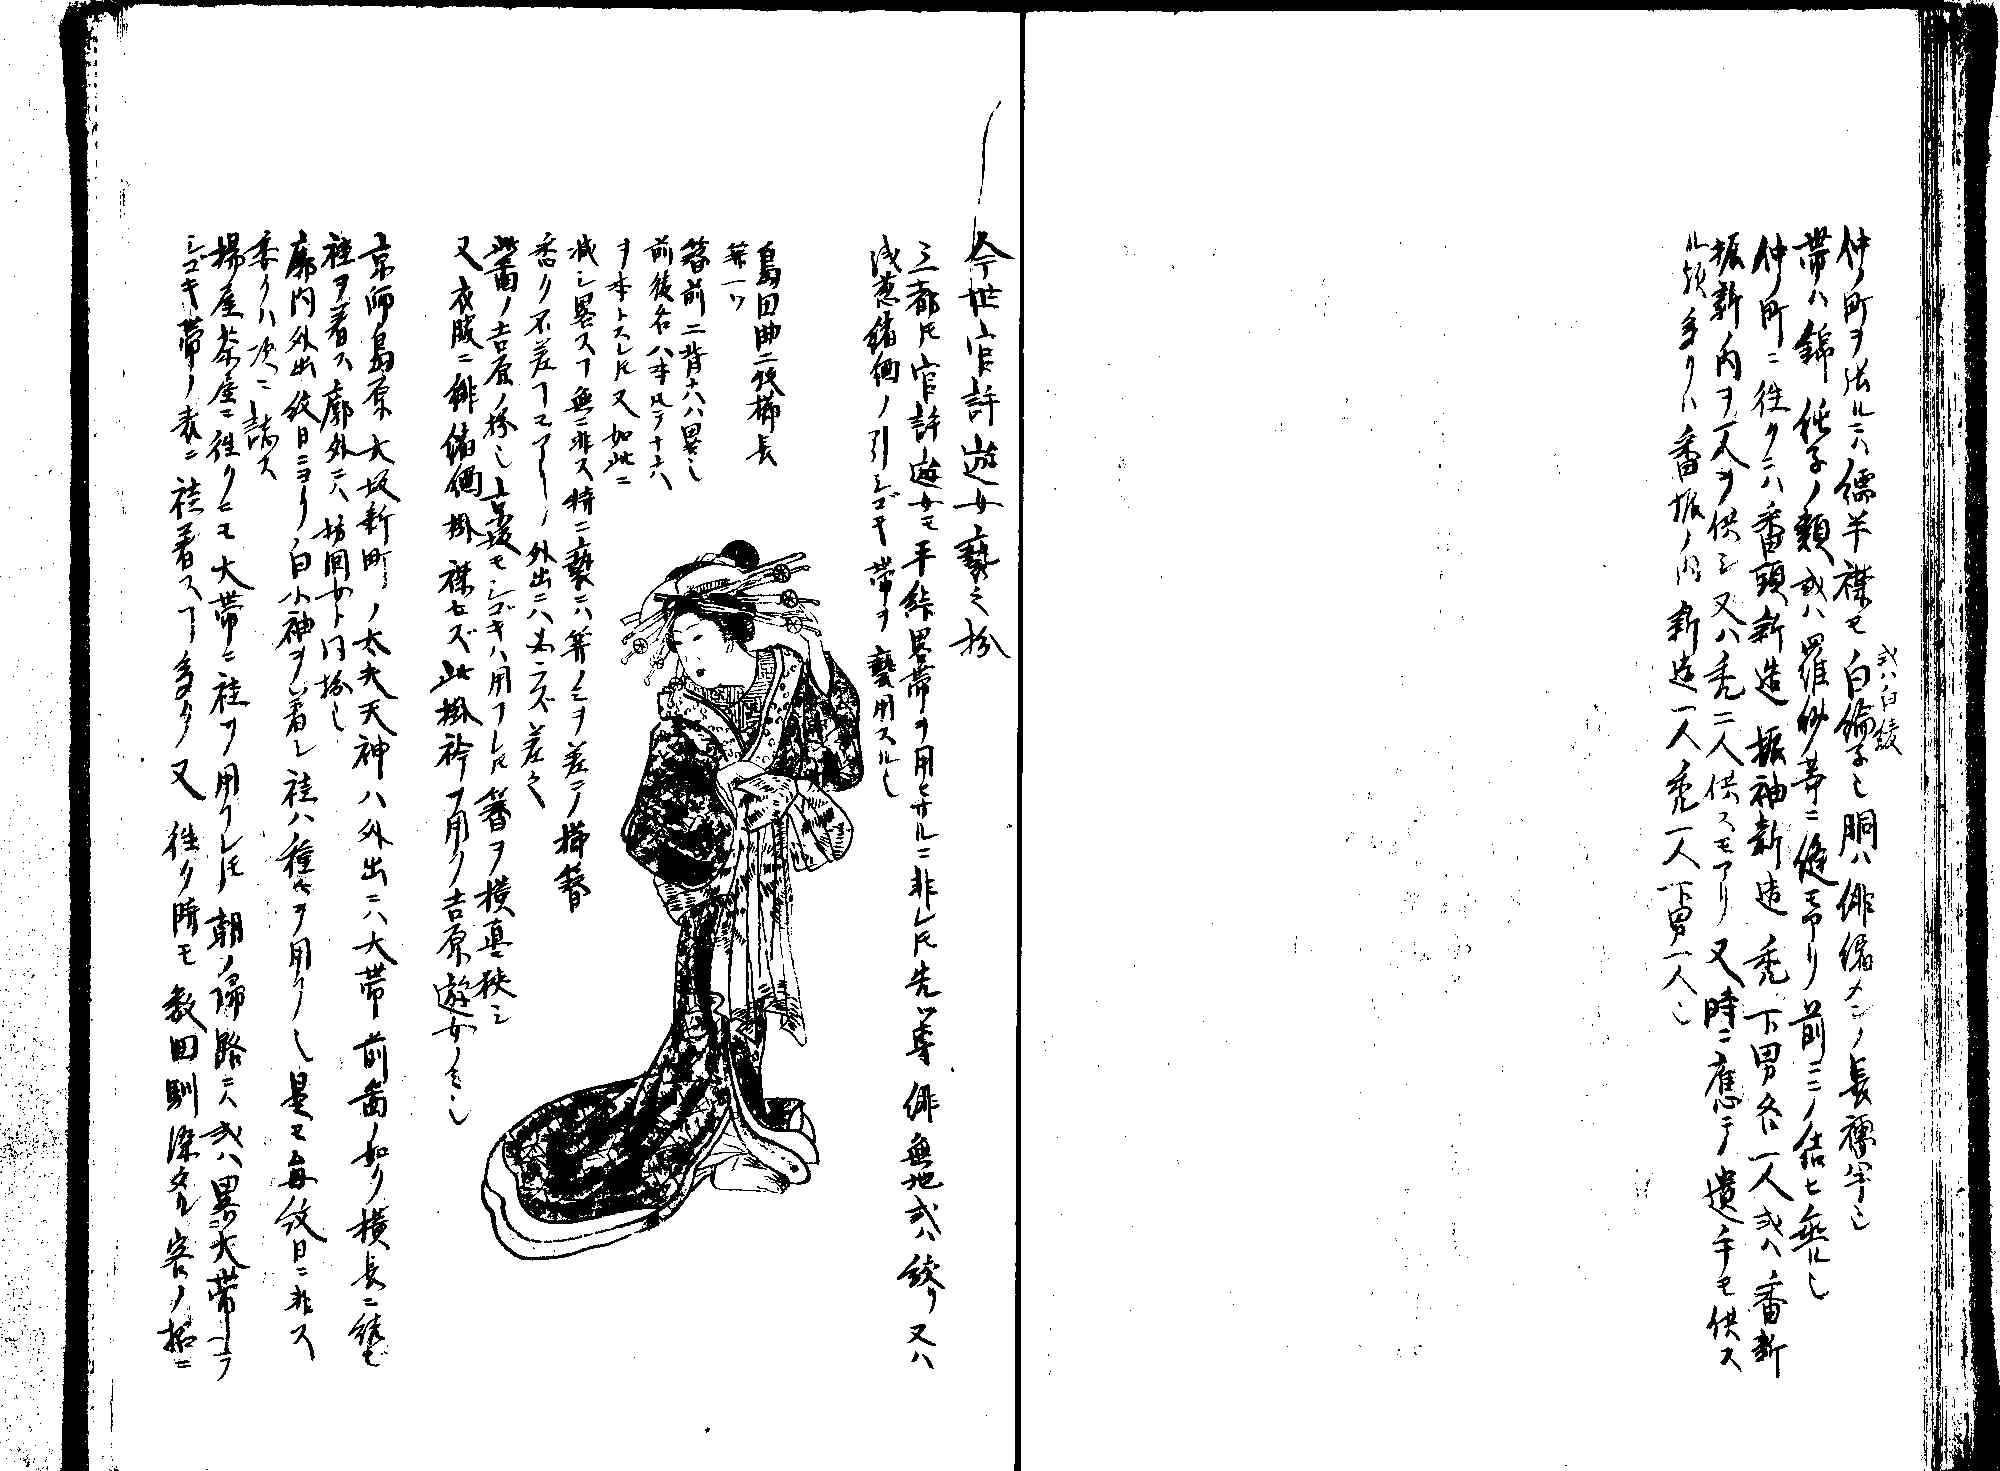 仲ノ町ヲ張ルニハ襦半襟モ白綸子也胴ハ緋縮メンノ長襦半也
或ハ白綾
帯ハ錦緞子ノ類或ハ羅紗等ニ縫モアリ前ニノミ結ヒ垂ル也
仲ノ町ニ往クニハ番頭新造振袖新造禿下男各一人或ハ番新
振新ノ内ヲ一人ヲ供シ又ハ禿二人供スモアリ又時ニ應テ遣手モ供ス
ル故多クハ番振ノ内新造一人禿一人下男一人也
今世官許遊女褻之扮
三都トモ官許遊女モ平絎畧帯ヲ用ヒサルニ非レトモ先専緋無地或ハ絞リ又ハ
浅葱縮緬ノ引シゴキ帯ヲ褻用スル也
島田曲ニ二枚櫛長
笄一ツ
簪前ニ背ト八異也
前後各八本凡テ十六
ヲ本トスレトモ又如此ニ
減シ畧スコ無ニ非ス特ニ褻ニハ笄ノミヲ差テ櫛簪
悉ク不差コモアリ外出ニハ必ラズ差之
此畵ノ吉原ノ扮也京坂モシゴキハ用フレトモ簪ヲ横直ニ狭シ
又衣服ニ緋縮緬掛襟セズ此掛衿ヲ用フ吉原遊女ノミ也
京師島原大坂新町ノ太夫天神ハ外出ニハ大帯前畵ノ如ク横長ニ結ビ
袿ヲ着ス廓外ニハ坊間女ト同扮也
廓内外出紋日ニヨリ白小袖ヲ着シ袿ハ種々ヲ用フ也是モ毎紋日ニ非ス
委クハ次ニ誌ス
揚屋茶屋ニ往クニモ大帯ニ袿ヲ用フレトモ朝ノ帰路ニハ或ハ畧大帯ニテ
シゴキ帯ノ表ニ袿着スコ多ク又往ク時モ数回馴染タル客ノ招ニ